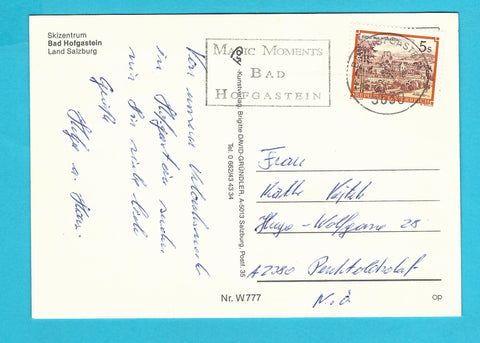 Skizentrum
Bad Hofgastein
Land Salzburg
MAGIC MOMENTS
BAD
HOFGASTEIN
5s
5630
Von unserem
in Hofgastein senden
wir
Grüße
Helga u. Hans
Kunstverlag Brigitte DAVID-GRÜNDLER, A-5013 Salzburg, Postf. 35
Tel. 0 662/43 43 34
Frau
Käthe
Hugo-Wolfgasse 28
A2380 Perchtoldsdorf
N.Ö.
Nr. W777
op